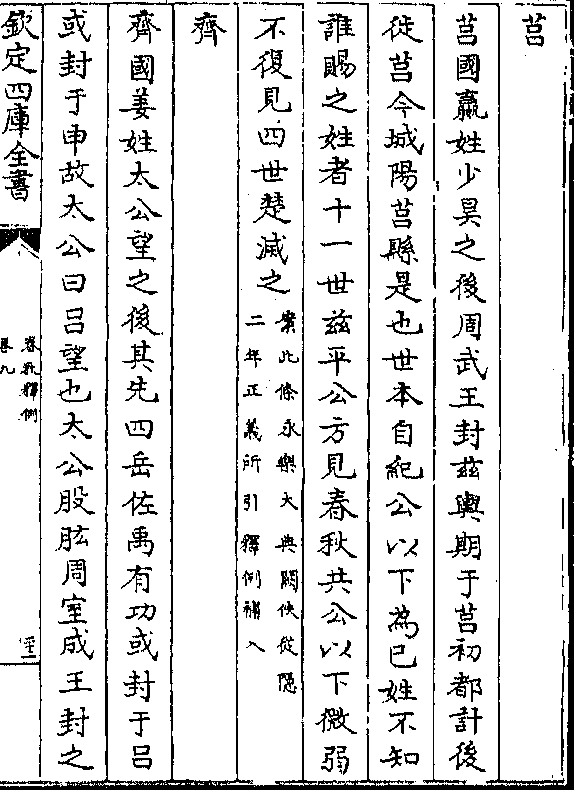 莒
莒國嬴姓少昊之後周武王封兹輿期于莒初都計後
徙莒今城陽莒縣是也世本自紀公以下為己姓不知
誰賜之姓者十一世兹平公方見春秋共公以下微弱
不復見四世楚滅之案此條永樂大典闕佚從隱
二年正義所引釋例補入
齊
齊國姜姓太公望之後其先四岳佐禹有功或封于呂
或封于申故太公曰呂望也太公股肱周室成王封之
欽定四庫全書
春秋釋例
卷九